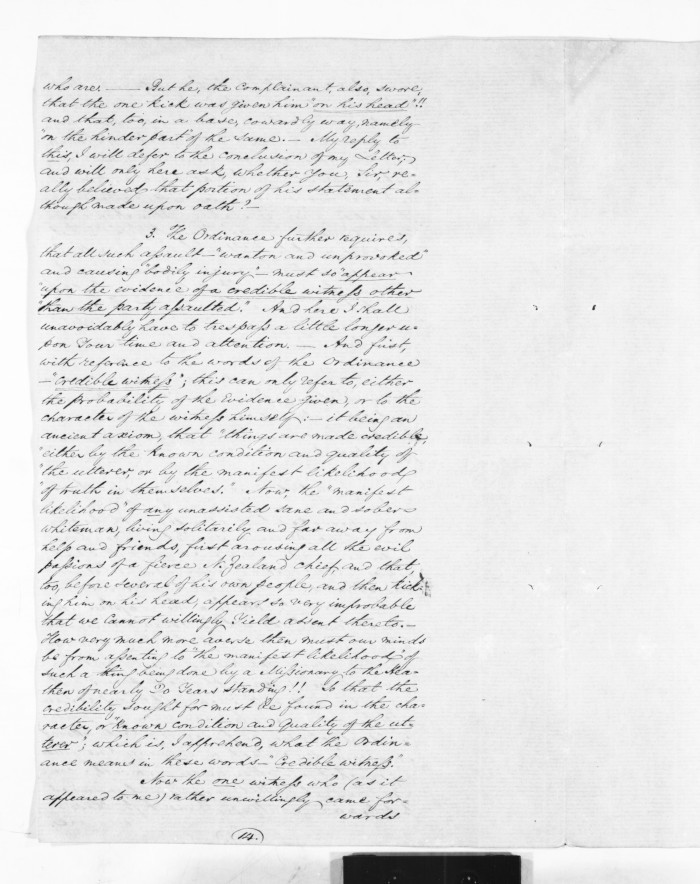 who are. —— But he, the Complainant, also, swore,
that the one kick was given him "on his head"!!
and that, too, in a base, cowardly way, namely
"on the hinder part" of the same. — My reply to
this, I will defer to the conclusion of my Letter,
and will only here ask, whether You, Sir, re-
ally believed that portion of his statement al-
though made upon oath? —
3. The Ordinance further requires,
that all such assault — "wanton and unprovoked"
and causing "bodily injury" — must so "appear
"upon the evidence of a credible witness other
"than the party assaulted." And here I shall
unavoidably have to trespass a little longer u-
pon Your time and attention. — And first,
with reference to the words of the Ordinance
— "Credible witness"; this can only refer to, either
the probability of the Evidence given, or to the
character of the witness himself: — it being an
ancient axiom, that "things are made credible,
"either by the known condition and quality of
"the utterer, or by the manifest likelihood
"of truth in themselves." Now, the "manifest
likelihood" of any unassisted sane and sober
whiteman, living solitarily and far away from
help and friends, first arousing all the evil
passions of a fierce N. Zealand Chief, and that,
too, before several of his own people, and then kick-
ing him on his head, appears so very improbable
that we cannot willingly Yield assent thereto. —
How very much more averse then must our minds
be from assenting to "the manifest likelihood" of
such a thing being done by a Missionary to the Hea-
then of nearly 20 Years standing!! So that the
credibility sought for must be found in the cha-
racter, or "known condition and quality of the ut-
terer"; which is, I apprehend, what the Ordin-
ance means in these words — "Credible witness".
Now the one witness who (as it
appeared to me) rather unwillingly came for-
wards
14.